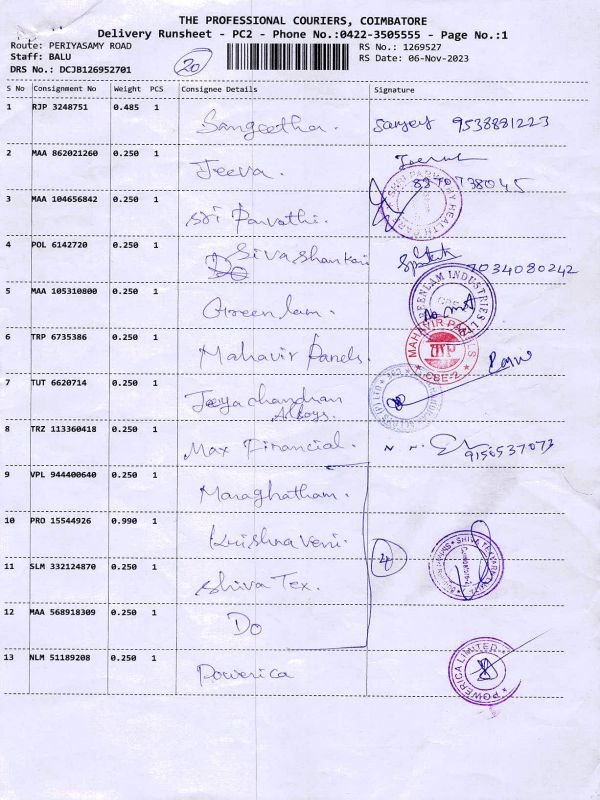 THE PROFESSIONAL COURIERS, COIMBATORE
Delivery Runsheet - PC2 - Phone No.:0422-3505555 - Page No.:1
Route: PERIYASAMY ROAD RS No.: 1269527
Staff: BALU 20 RS Date: 06-Nov-2023
DRS No.: DCJB126952701
S No Consignment No Weight PCS Consignee Details Signature
1 RJP 3248751 0.485 1 Sangeetha. Sanjey 9538881223
2 MAA 862021260 0.250 1 Jeeva.
8870738045
3 MAA 104656842 0.250 1 Sri Parvathi.
4 POL 6142720 0.250 1 Siva Shankari
Do 7034080242
5 MAA 105310800 0.250 1 Greenlam. GREENLAM INDUSTRIES LT
6 TRP 6735386 0.250 1 Mahavir Panels. MAHAVIR PANELS
CBE-2
7 TUT 6620714 0.250 1 Jeyachandran
Alloys.
8 TRZ 113360418 0.250 1 Max Financial. 9150537073
9 VPL 944400640 0.250 1 Maraghatham.
10 PRO 15544926 0.990 1 Krishnaveni.
4
11 SLM 332124870 0.250 1 Shiva Tex. SHIVA TEX
12 MAA 568918309 0.250 1 Do
13 NLM 51189208 0.250 1 Powerica POWERICA LIMITED